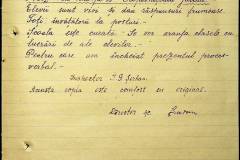 Elevii sunt vioi și dau răspunsuri frumoase.
Toți învățătorii la posturi. -
Școala este curată. - Se vor aranja clasele cu
lucrări de ale elevilor. -
Pentru care am încheiat prezentul proces-
verbal. -
Inspector
Această copie este conform cu original.
Director